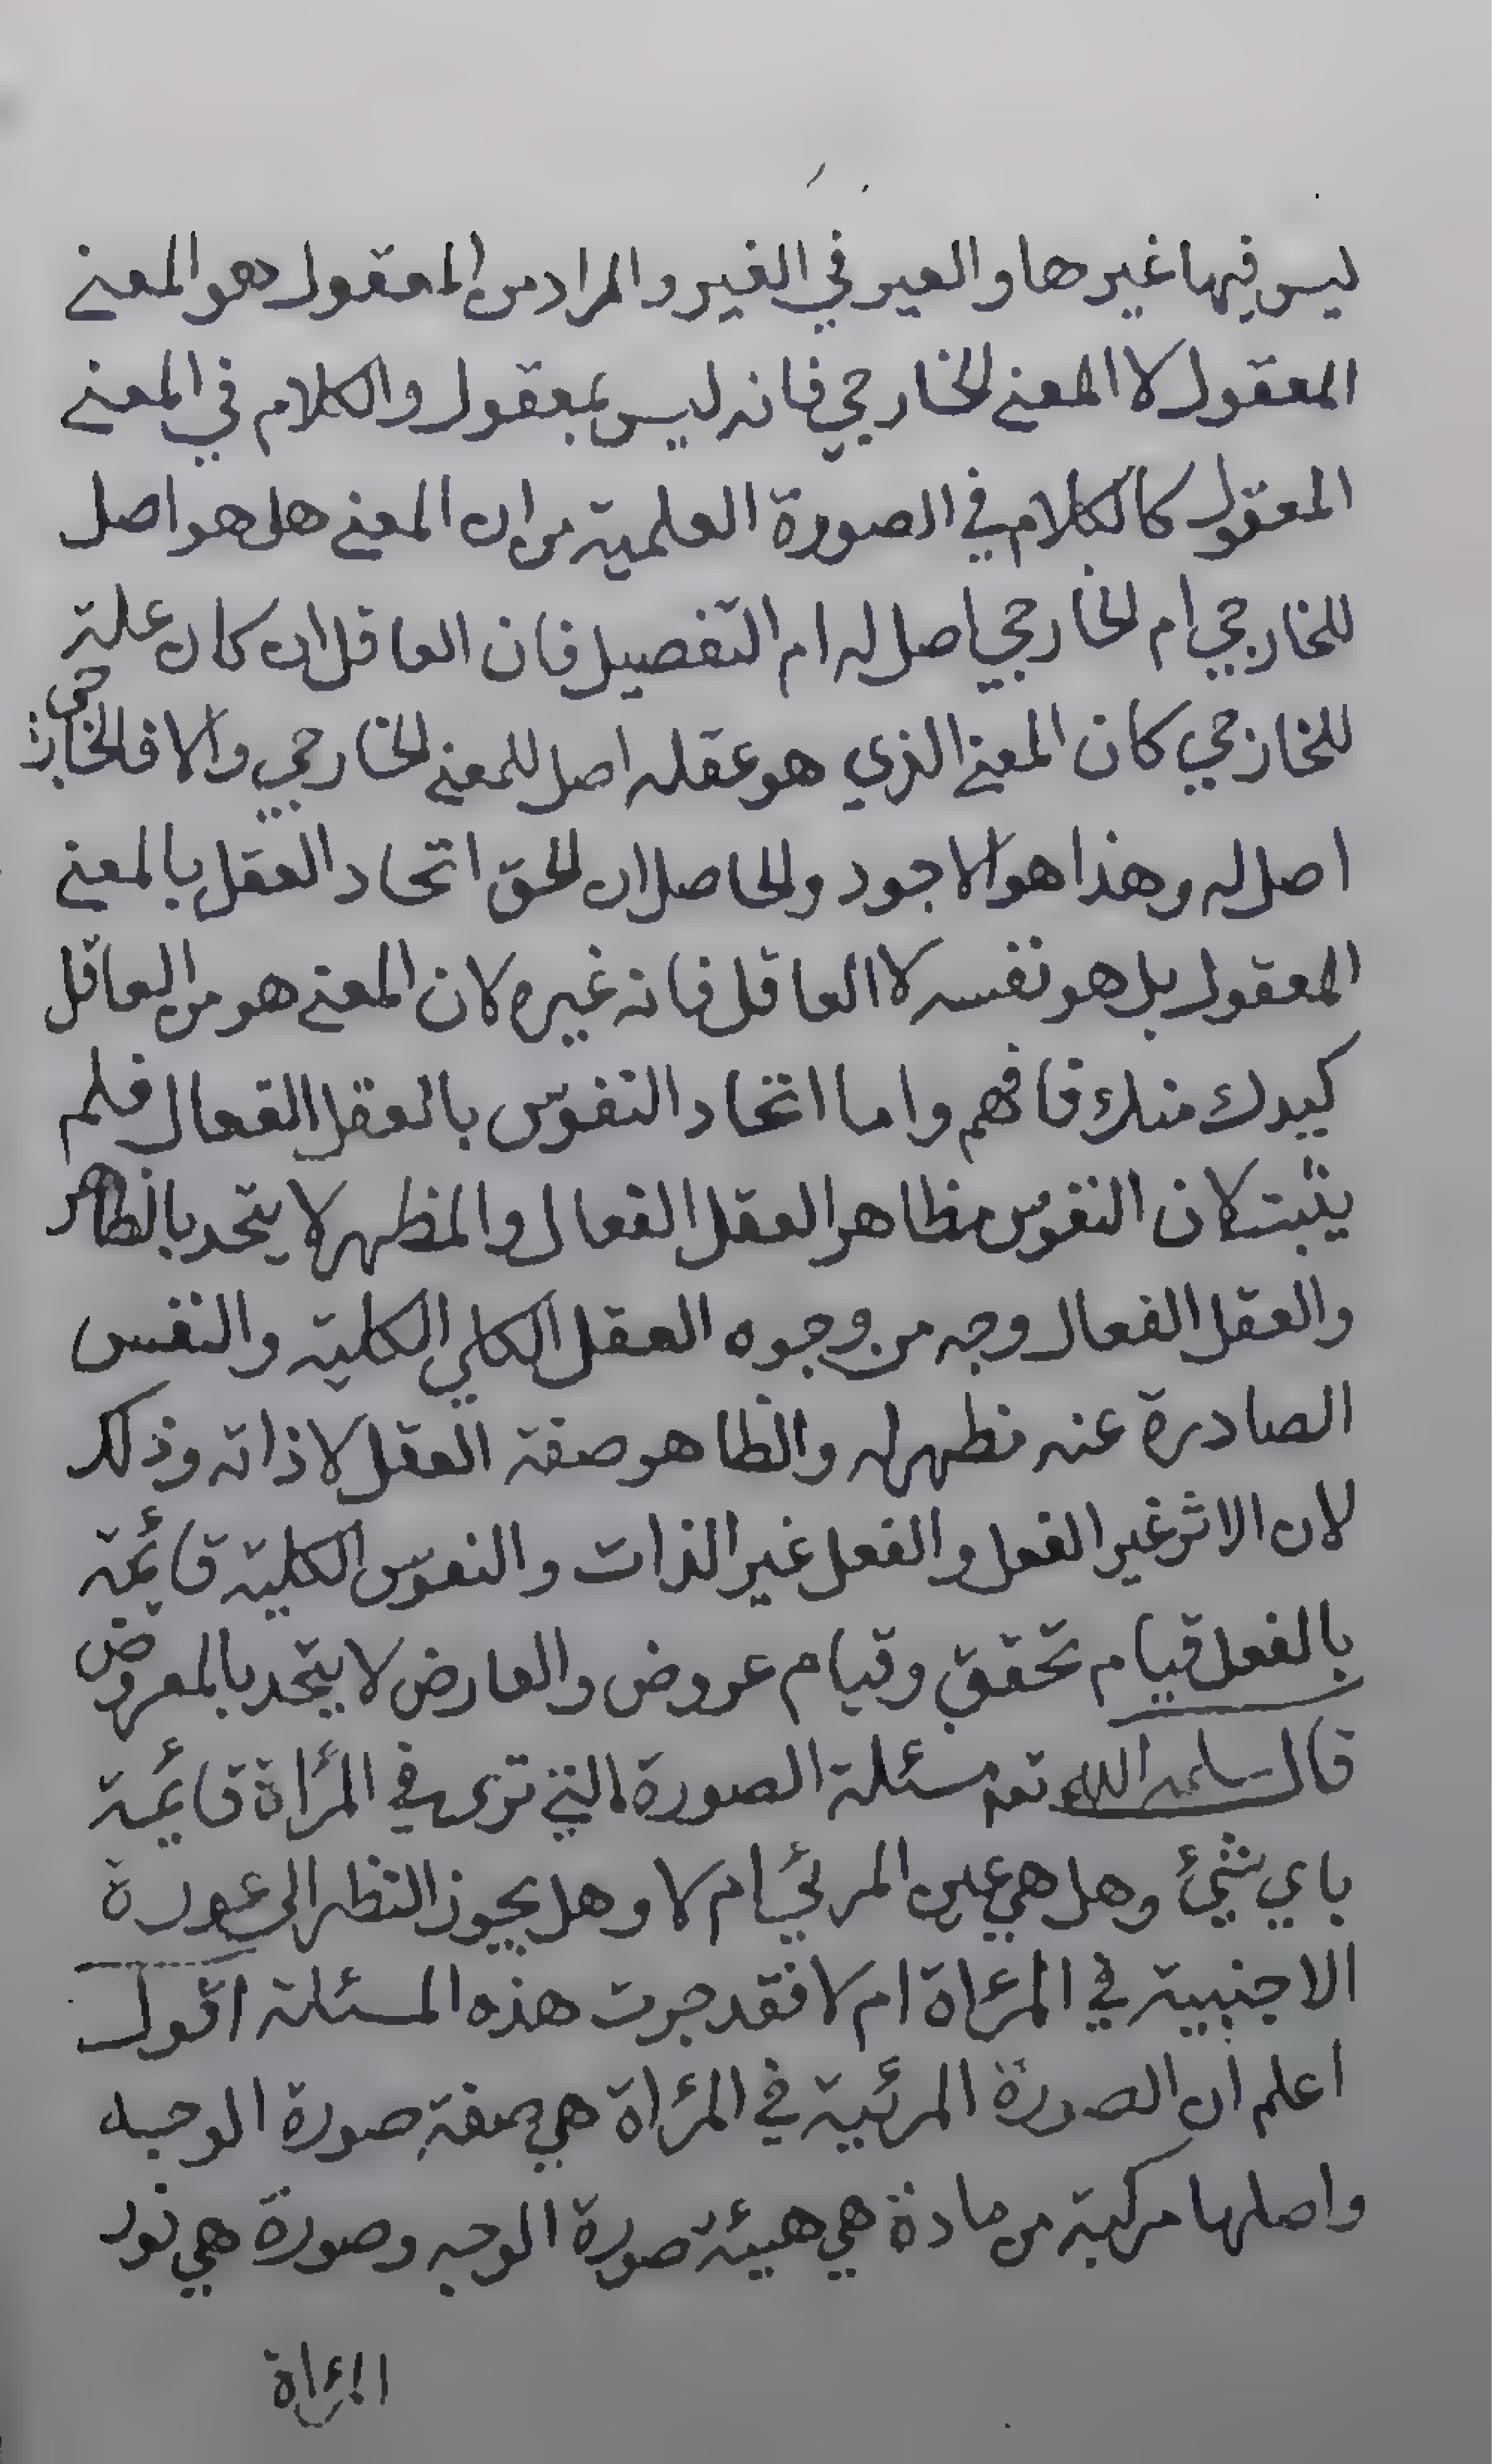 ليس فيها غيرها والغير في الغير والمراد من المعقول هو المعني
المعقول لا المعني الخارجي فانه ليس بمعقول والكلام في المعني
المعقول كالكلام في الصورة العلمية من ان المعني هل هو اصل
للخارجي ام الخارجي اصل له ام التفصيل فان العاقل ان كان علة
للخارجي كان المعني الذي هو عقله اصل للمعني الخارجي والا فالخارجي
اصل له وهذا هو الاجود والحاصل ان الحق اتحاد العقل بالمعني
المعقول بل هو نفسه لا العاقل فانه غيره لان المعني هو من العاقل
كيدك منك فافهم واما اتحاد النفوس بالعقل الفعال فلم
يثبت لان النفوس مظاهر العقل الفعال والمظهر لا يتحد بالظاهر
والعقل الفعال وجه من وجوه العقل الكلي الكلية والنفس
الصادرة عنه مظهر له والظاهر صفة العقل لا ذاته وذلك
لان الاثر غير الفعل والفعل غير الذات والنفوس الكلية قائمة
بالفعل قيام تحقق وقيام عروض والعارض لا يتحد بالمعروض
قال سلمه الله تعم مسئلة الصورة التي ترى في المرأة قائمة
باي شئ وهل هي عين المرئي ام لا وهل يجوز النظر الى عورة
الاجنبية في المرءاة ام لا فقد جرت هذه المسئلة اقول
اعلم ان الصورة المرئية في المرءاة هي صفة صورة الوجه
واصلها مركبة من مادة هي هيئة صورة الوجه وصورة هي نور
المرءاة